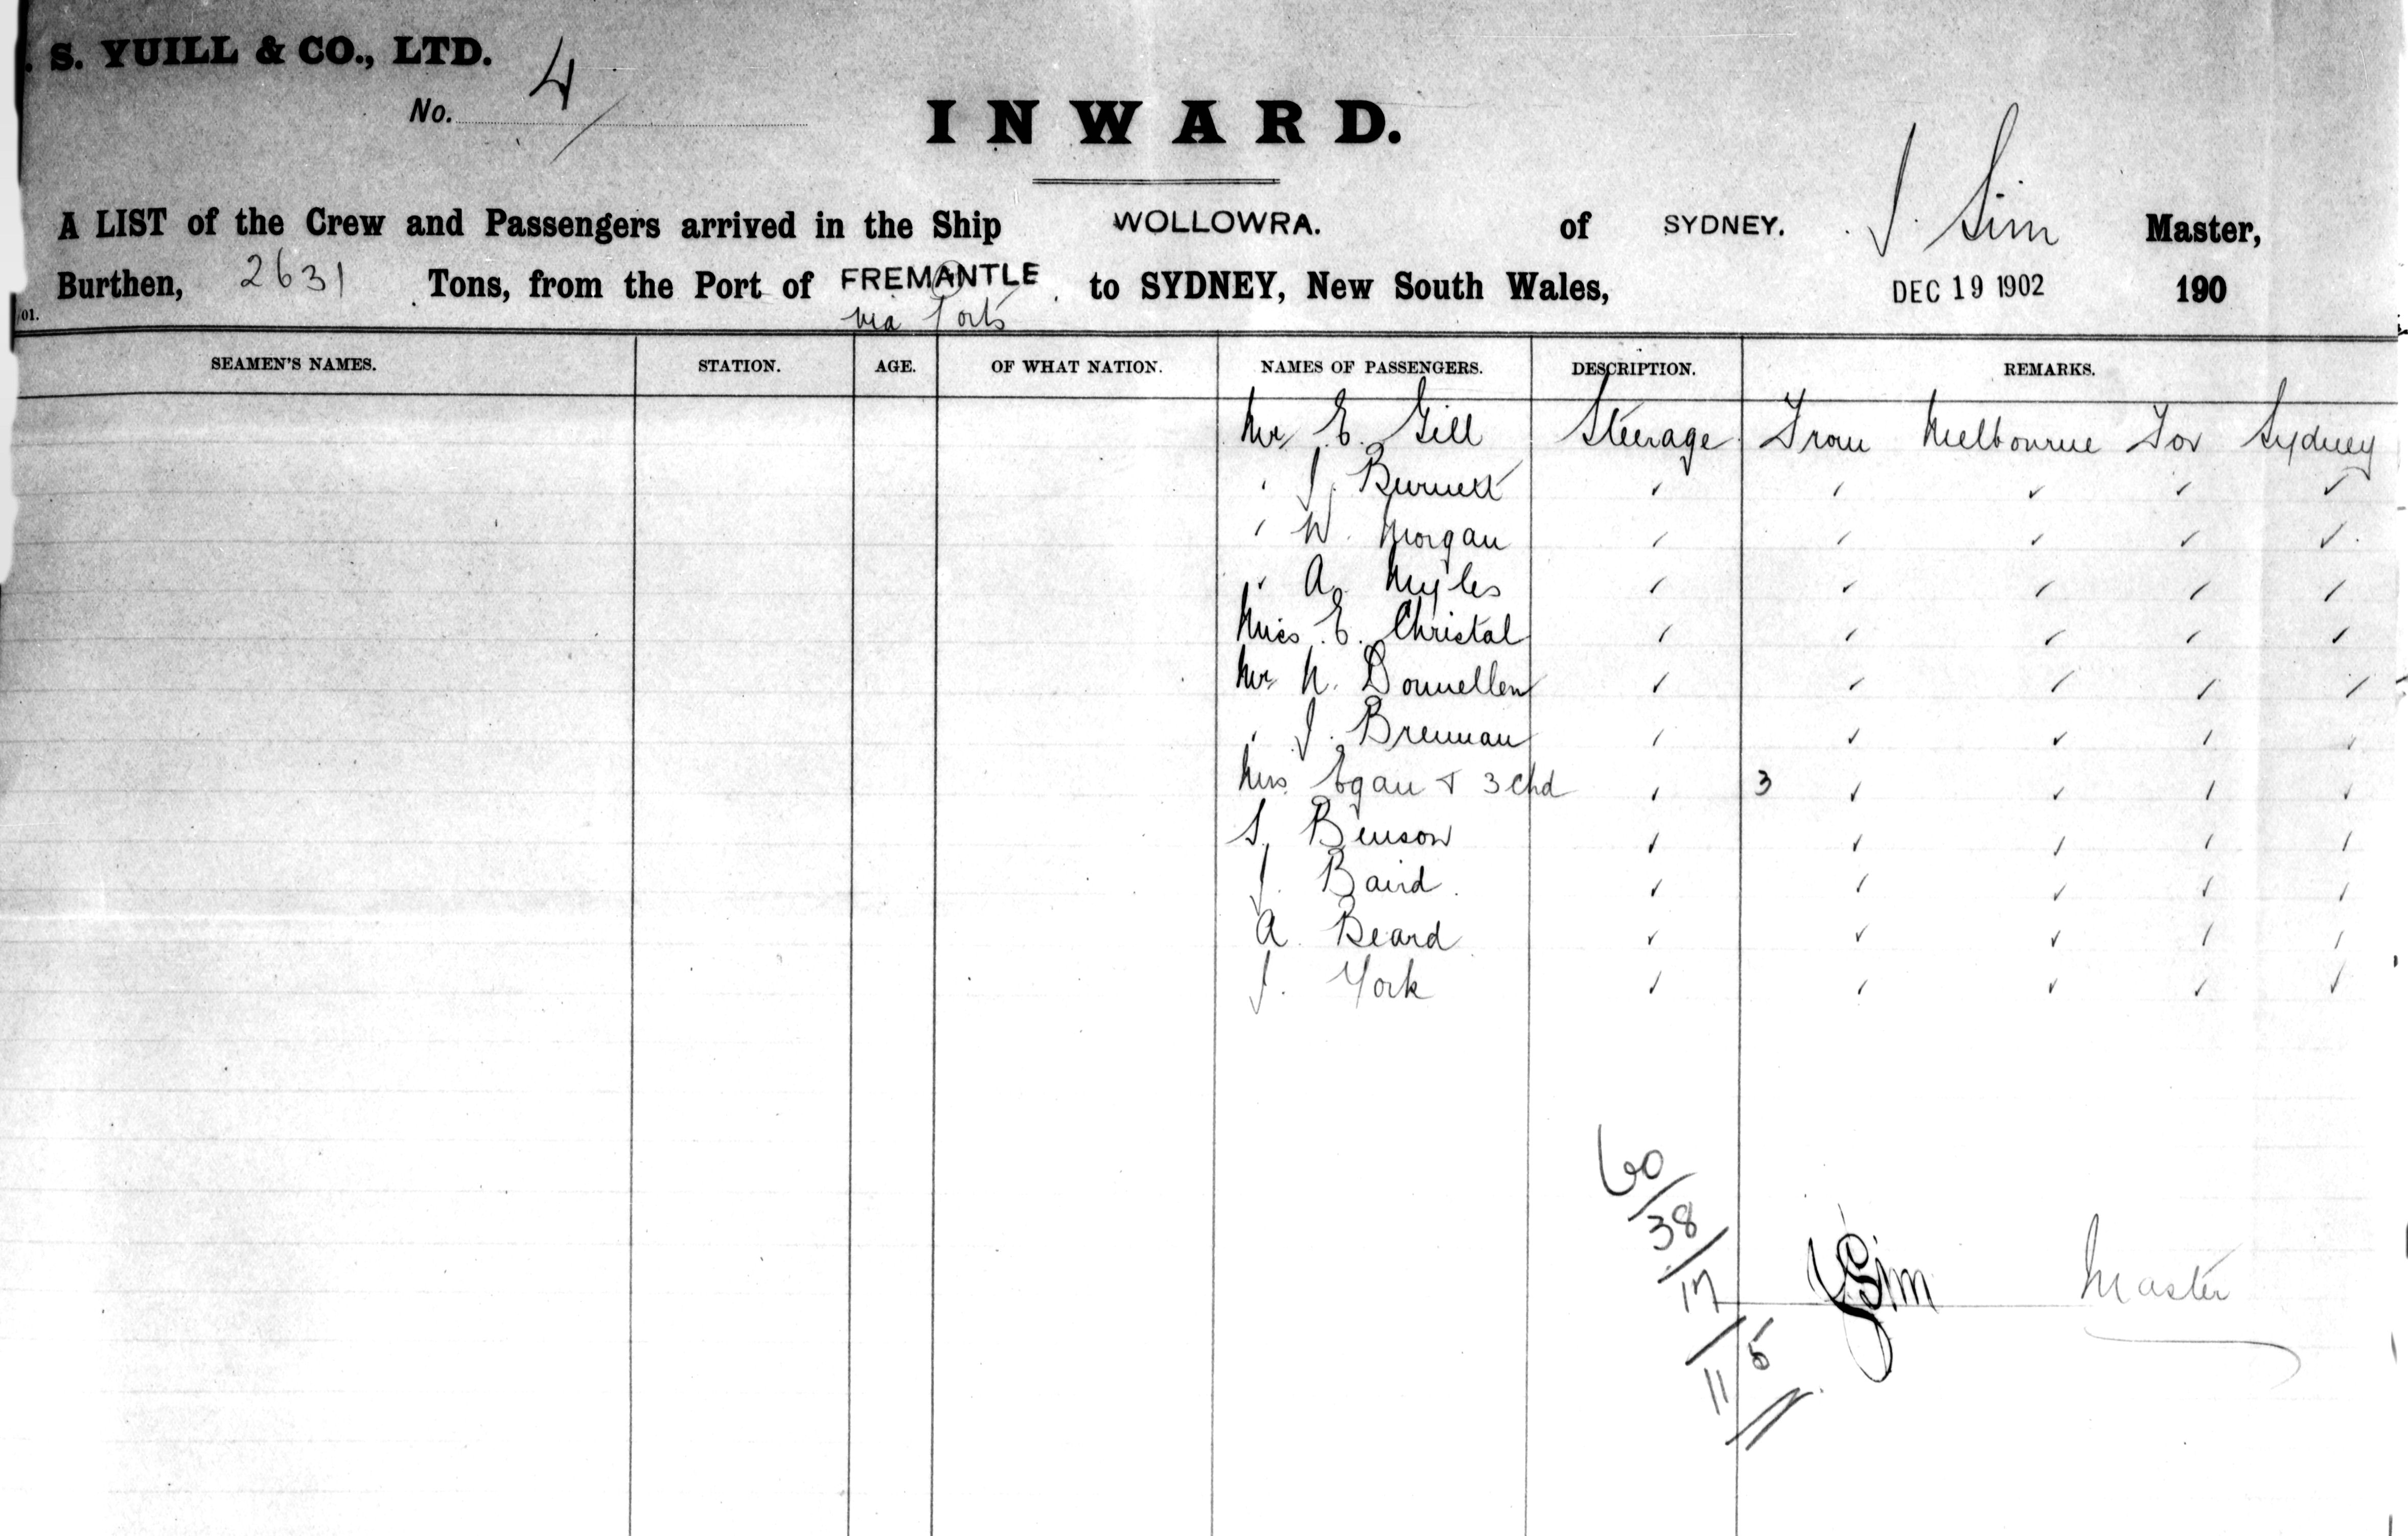 . S. YUILL & CO., LTD.
No. 4
INWARD.
A LIST of the Crew and Passengers arrived in the Ship WOLLOWRA. of SYDNEY. J. Sim Master,
Burthen, 2631 Tons, from the Port of FREMANTLE to SYDNEY, New South Wales, DEC 19 1902 190
via Ports
/01.
SEAMEN'S NAMES. STATION. AGE. OF WHAT NATION. NAMES OF PASSENGERS. DESCRIPTION. REMARKS.
Mr E. Gill Steerage From Melbourne For Sydney
" J. Burnett " " " " "
" W. Morgan " " " " "
" A. Myles " " " " "
Miss E. Christal " " " " "
Mr N. Donnellen " " " " "
" J. Brennan " " " " "
Mrs Egan & 3 Chd " 3 " " " "
S. Benson " " " " "
J. Baird " " " " "
A. Beard " " " " "
J. York " " " " "
60/
38/
17
/
11 5
J Sim Master